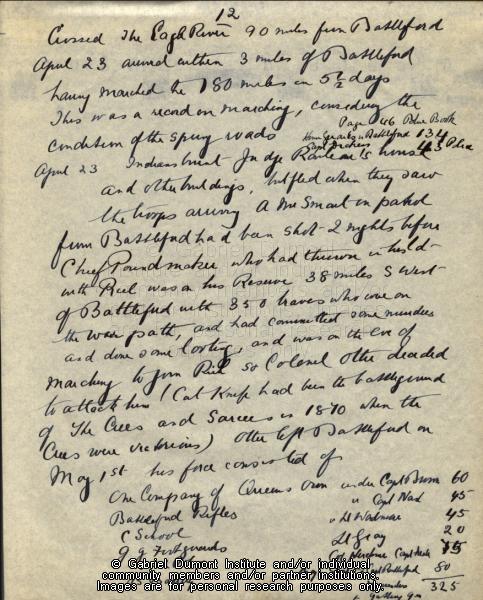 12
Crossed The Eagle River 90 miles from Battleford
April 23 arrived within 3 miles of Battleford
having marched the 180 miles in 5½ days
This was a record in marching, considering the
Page 46 Blue Book
condition of the spring roads
Home Guards in Battleford 134
43 Police
April 23 Indians burnt Judge Rouleau's house
and other buildings, but fled when they saw
the troops arriving A Mr Smart on patrol
from Battleford had been shot 2 nights before
Chief Poundmaker who had thrown in his lot
with Riel was on his Reserve 38 miles S West
of Battleford with 350 braves who were on
the war path, and had committed some murders
and done some looting, and was on the eve of
marching to join Riel so Colonel Otter decided
to attack him (Cut Knife had been the battleground
of The Crees and Sarcees in 1870 when the
Crees were victorious) Otter left Battleford on
May 1st his force consisted of
One Company of Queens Own under Capt Brown 60
Battleford Rifles " Capt Nash 45
C School " Lt Wadmore 45
G G Footguards Lt Gray 20
Col Herchmer Capt Neale 75
Battleford 80
325
© Gabriel Dumont Institute and/or individual
community members and/or partner institutions.
Images are for personal/research purposes only.